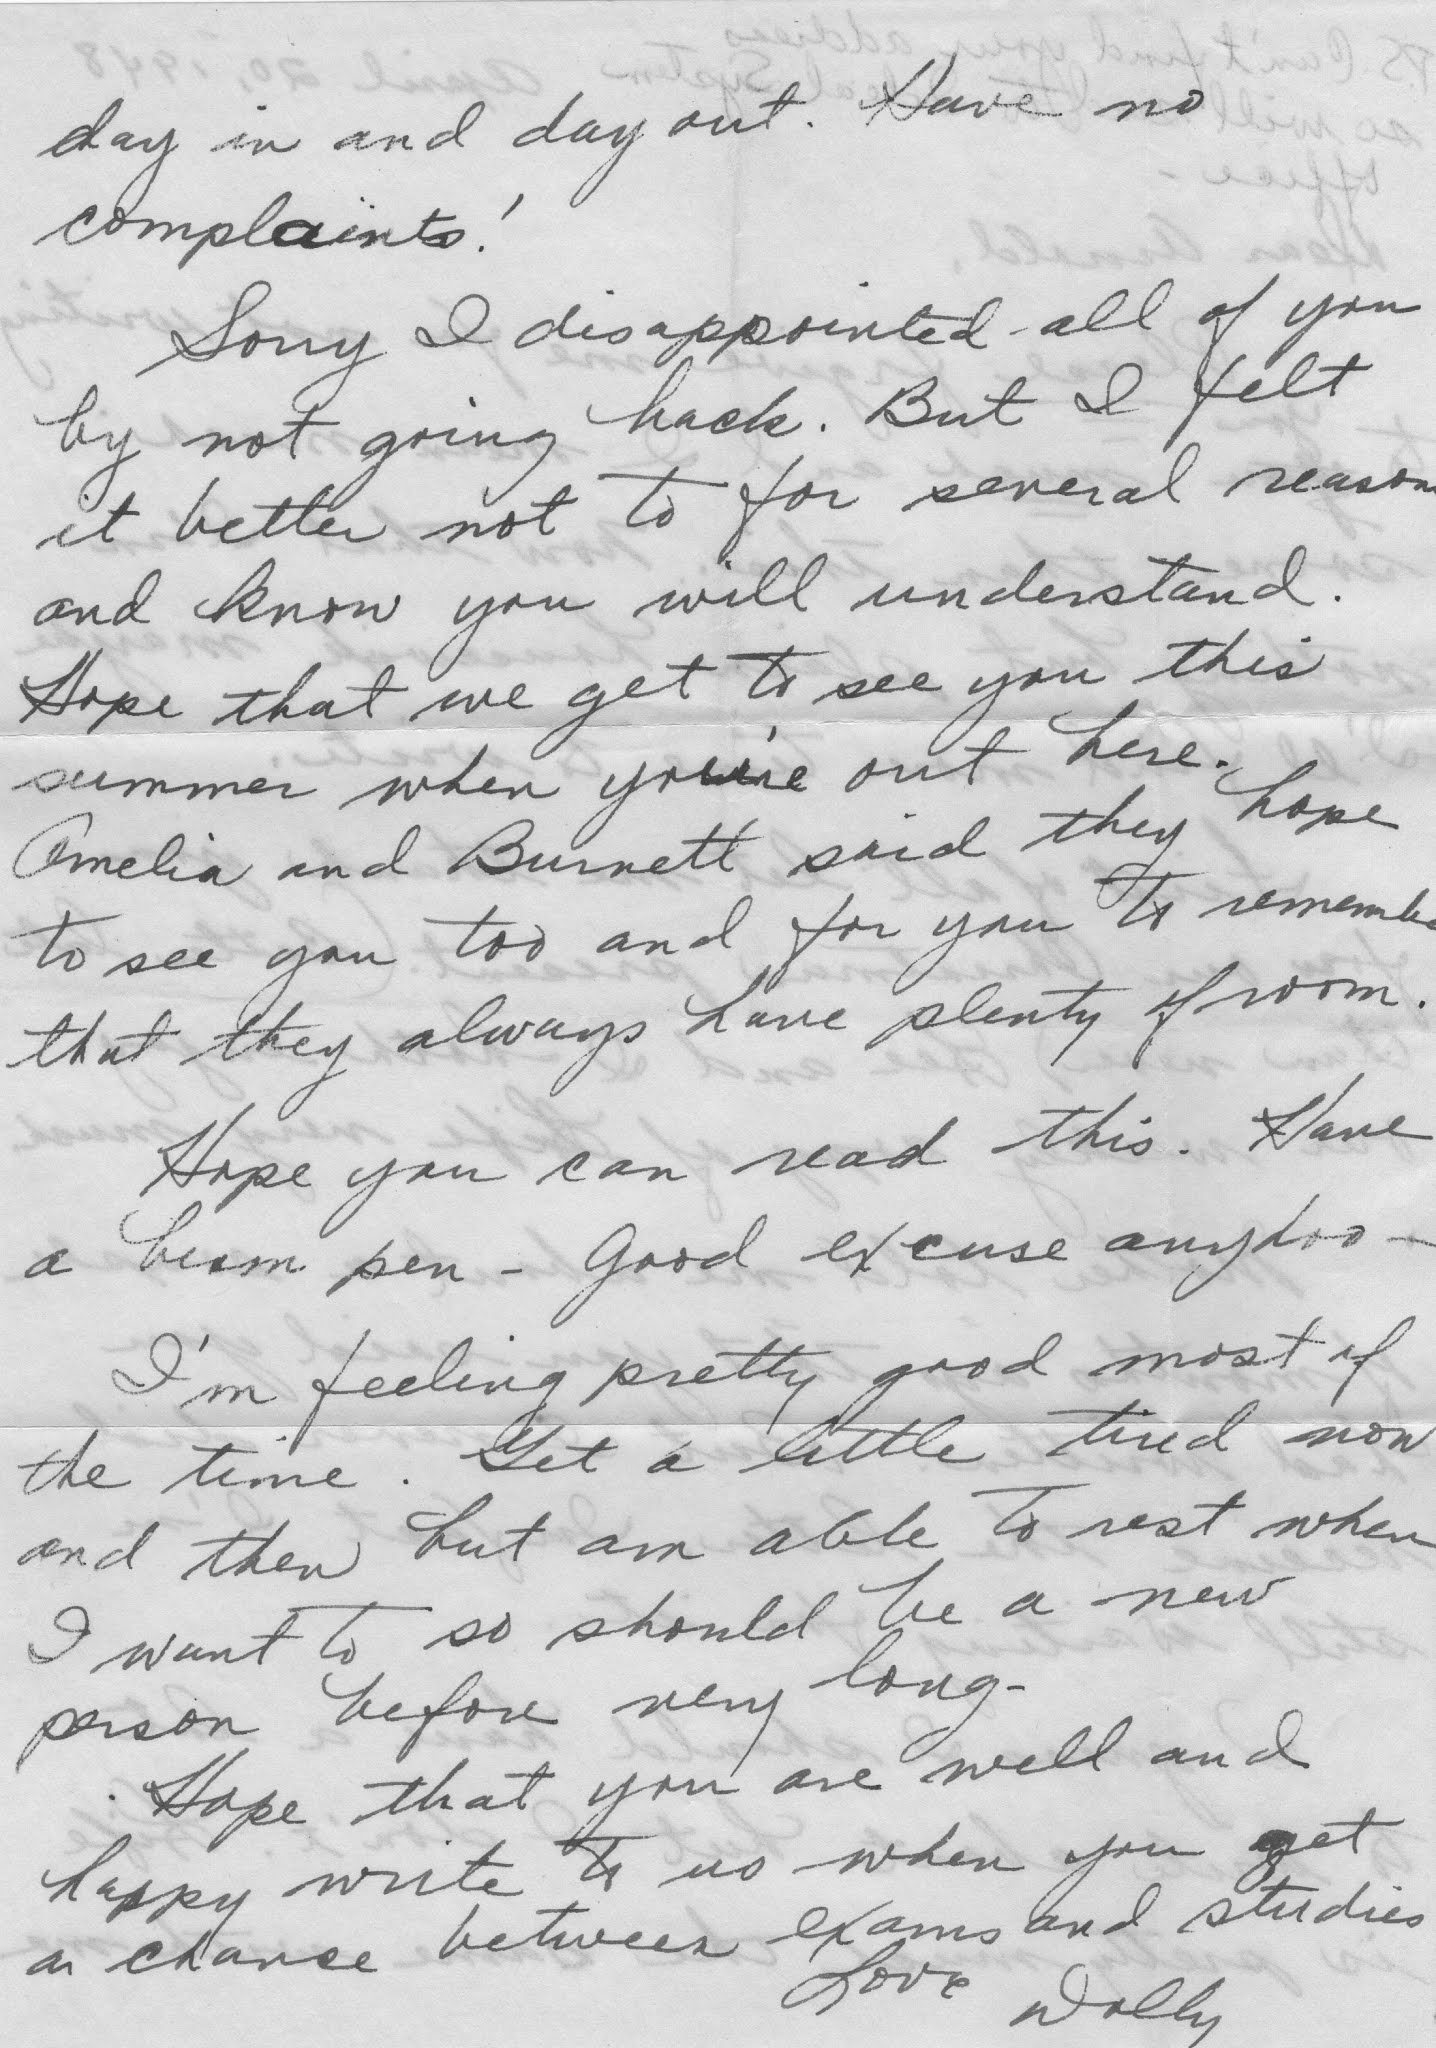 day in and day out. Have no
complaints!
Sorry I disappointed all of you
by not going back. But I felt
it better not to for several reason
and know you will understand.
Hope that we get to see you this
summer when you're out here.
Amelia and Burnett said they hope
to see you too and for you to remembe
that they always have plenty of room.
Hope you can read this. Have
a bum pen - Good excuse anyhoo -
I'm feeling pretty good most of
the time. Get a little tired now
and then but am able to rest when
I want to so should be a new
person before very long -
Hope that you are well and
happy write to us when you get
a chance between exams and studies
Love Dolly